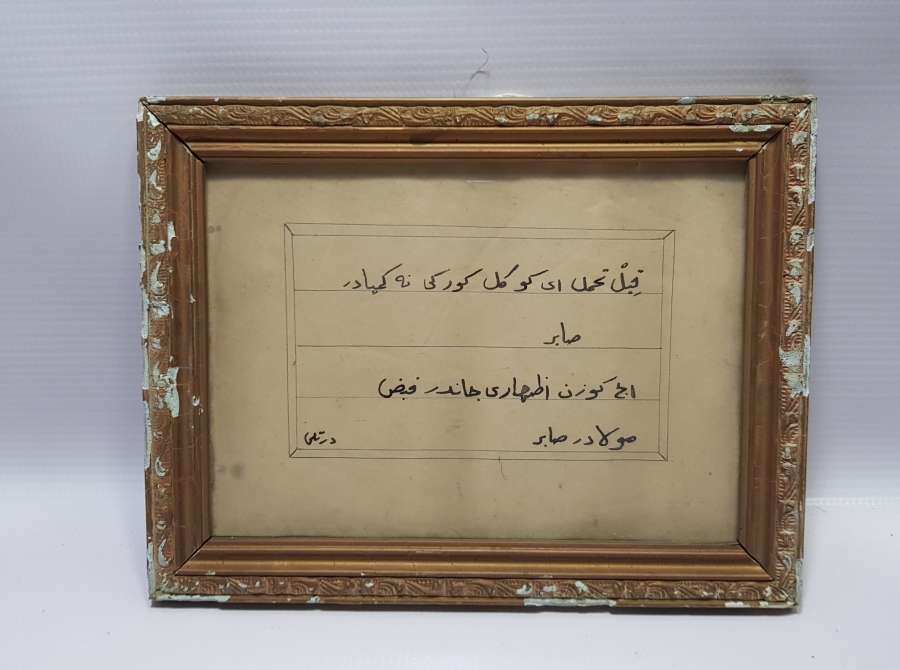 قِیلْ تحمل ای کوکل کورکی نه کمیادر
صابر
اچ کوزن اظهاری جاندر فیض
مولادر صابر
درتلی